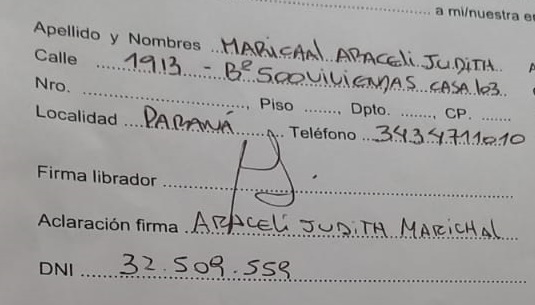 a mi/nuestra e
Apellido y Nombres MARICHAL ARACELI JUDITH
Calle 1913 - Bº 500 VIVIENDAS CASA 103
Nro. , Piso , Dpto. , CP.
Localidad PARANÁ Teléfono 3434711010
Firma librador
Aclaración firma ARACELI JUDITH MARICHAL
DNI 32.509.559